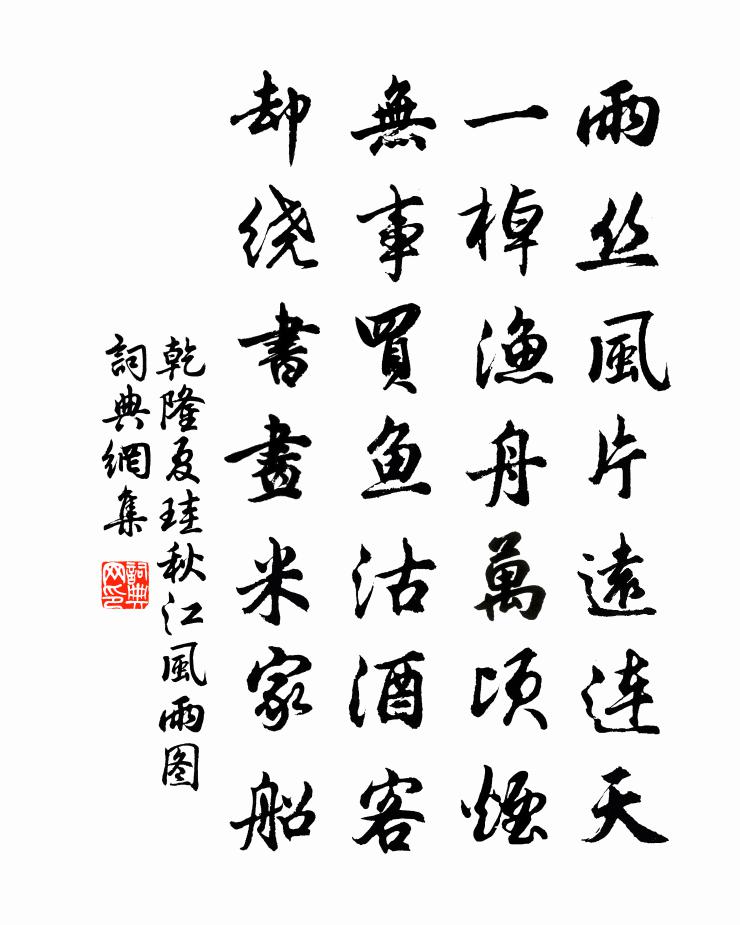 雨丝風片遠连天
一棹漁舟萬顷煙
無事買鱼沽酒客
却绕書畫米家船
乾隆夏珪秋江風雨图
詞典網集
詞典网印